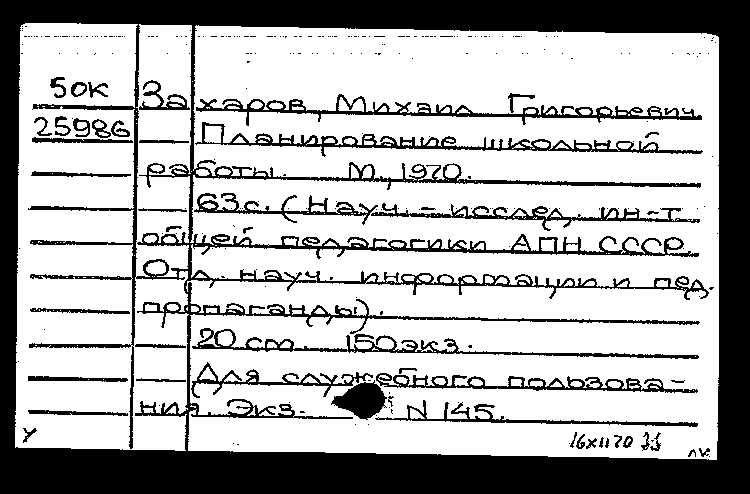 50К Захаров, Михаил Григорьевич.
25986 Планирование школьной
работы. М., 1970.
63с. (Науч. – исслед. ин-т
общей педагогики АПН СССР.
Отд. науч. информации и пед.
пропаганды).
20 см. 150экз.
Для служебного пользова-
ния. Экз. N 145.
У 16х1170